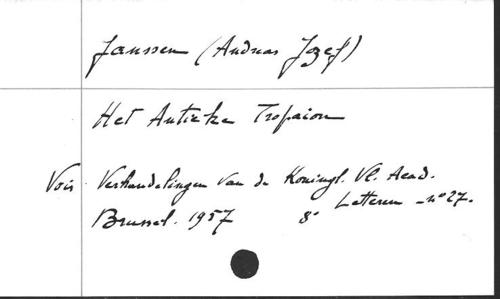 Janssen (Andreas Jozef)
Het Antieke Tropaion
Vois Verhandelingen van de Koningl. Vl. Acad.
Letteren - nº 27.
Brussel. 1957 8º